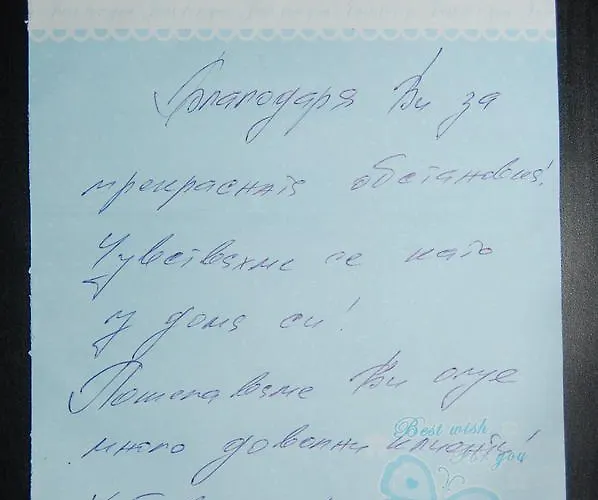 Благодаря Ви за
прекрасната обстановка!
Чувствахме се като
у дома си!
Пожелаваме Ви още
много доволни клиенти!
Best wish
you